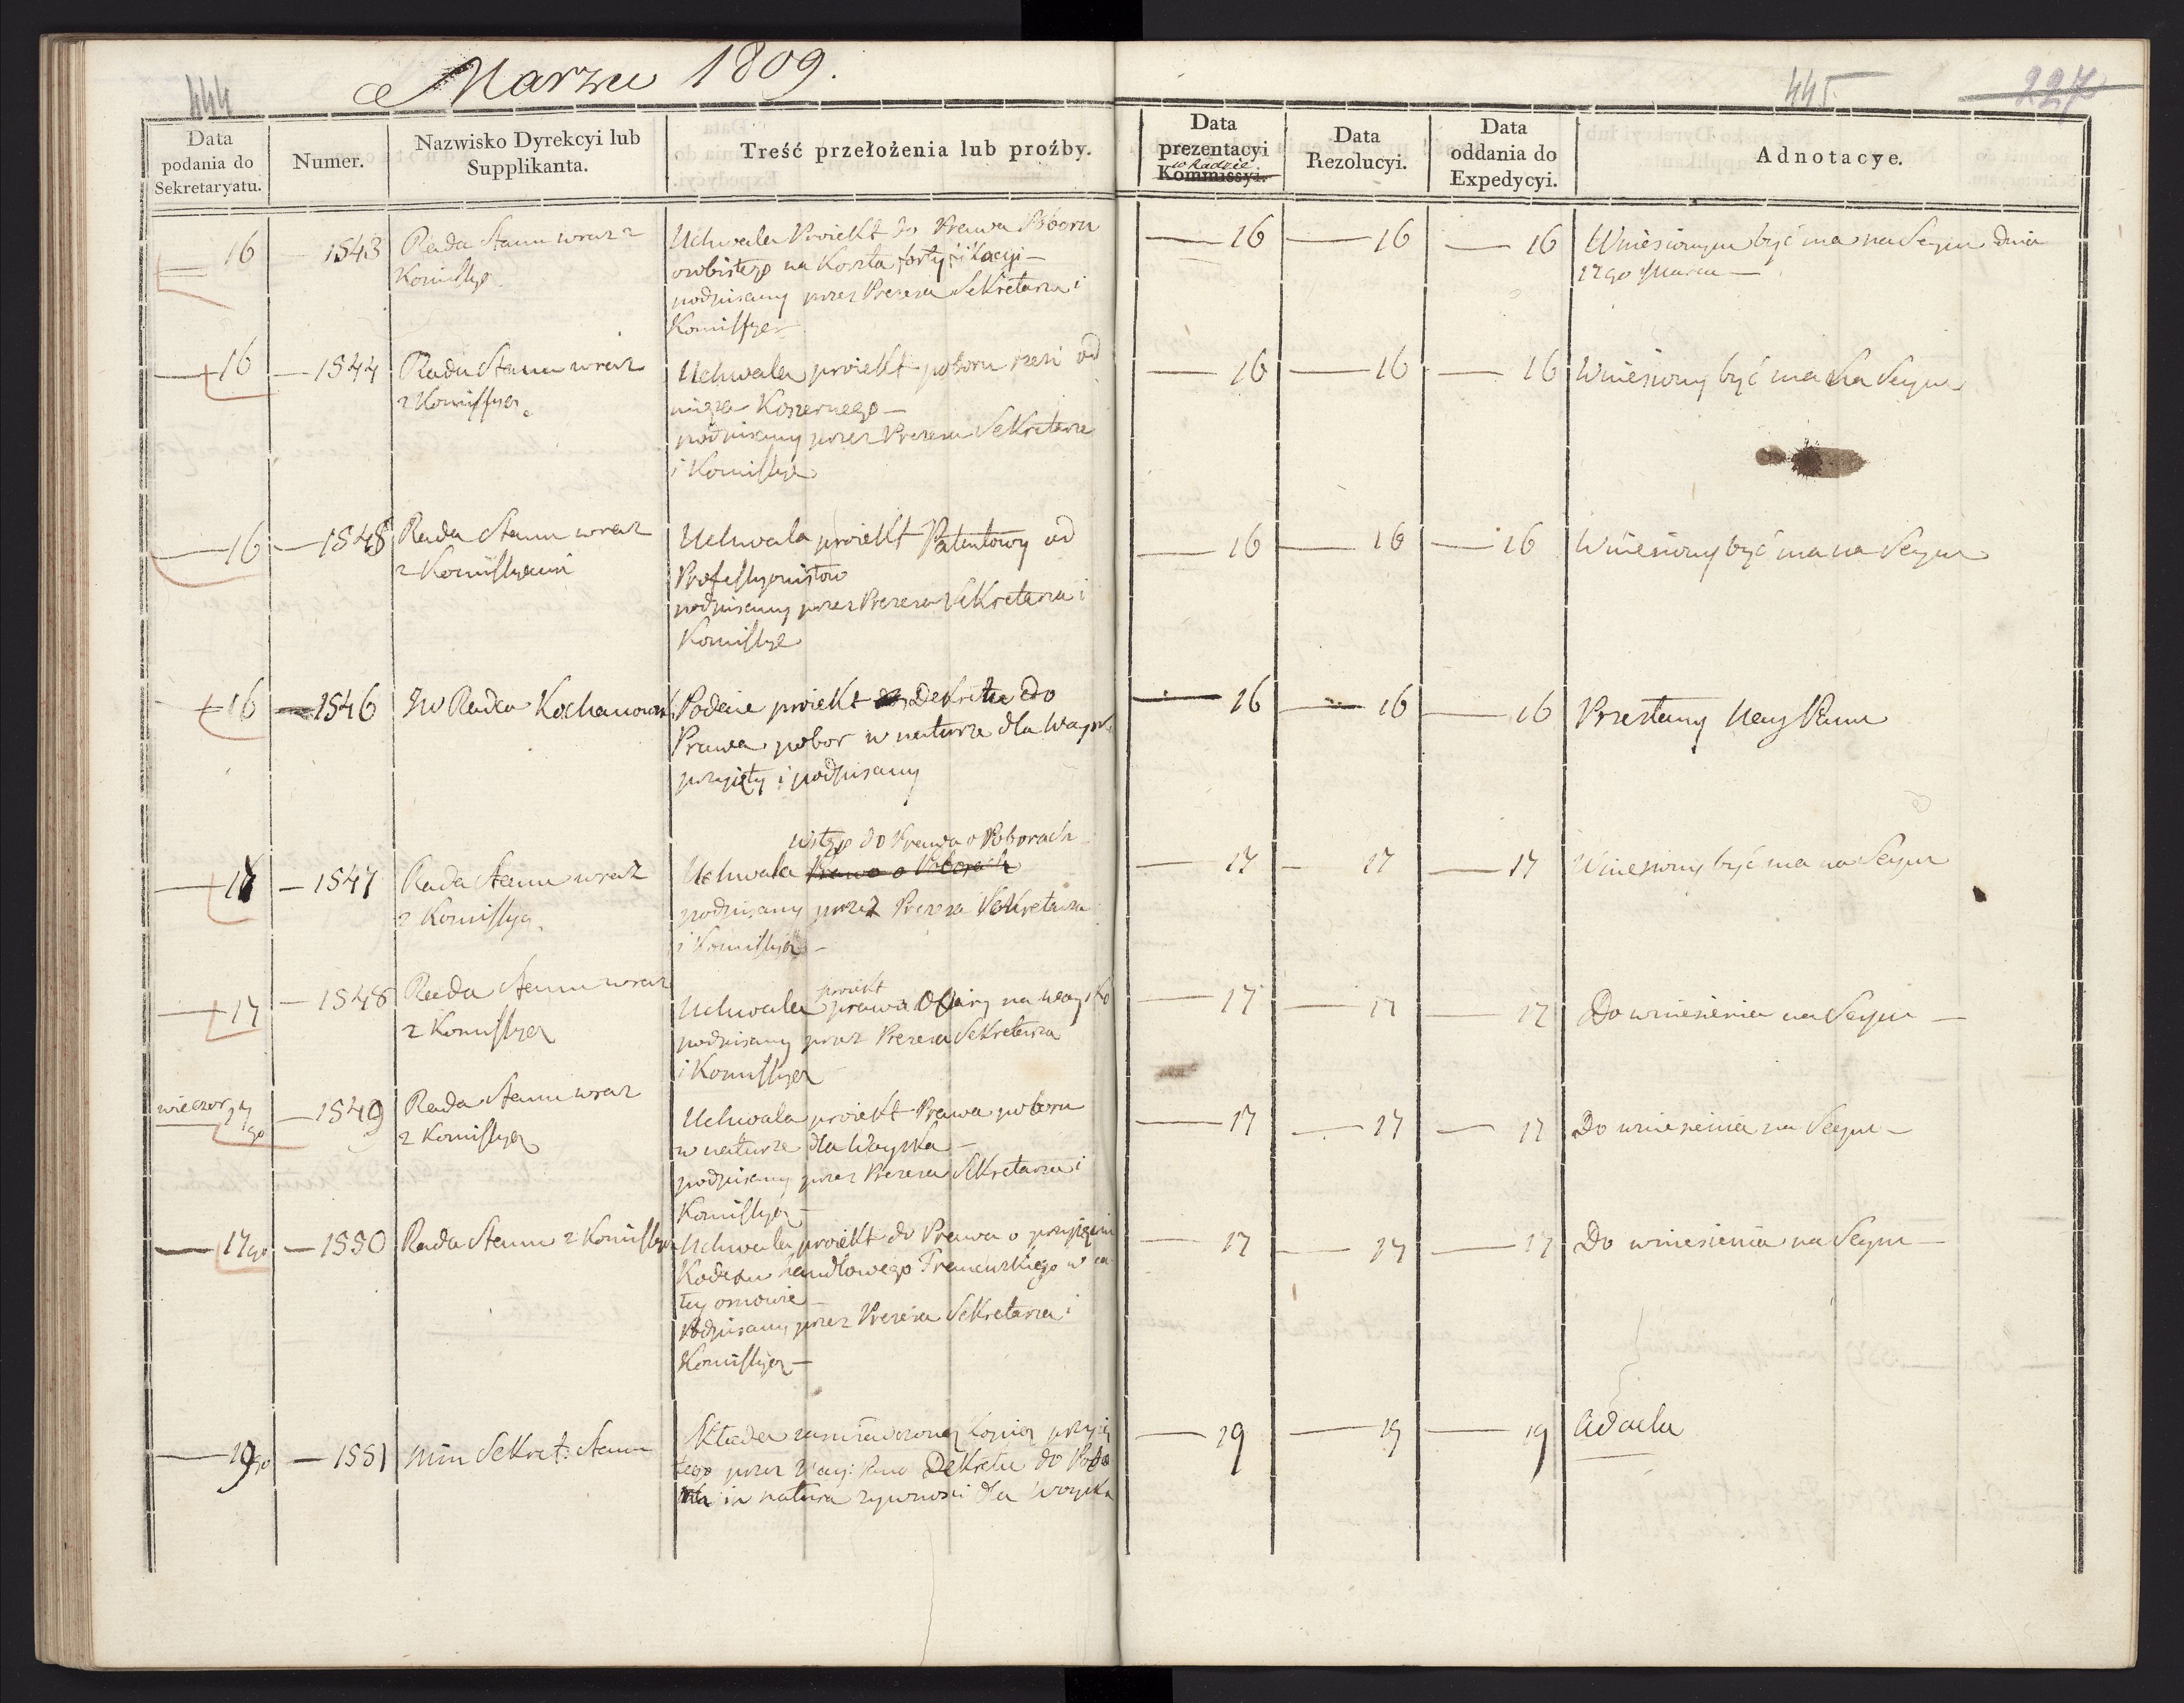 444
Marzec 1809.
445.
227
Data podania do Sekretaryatu.
Numer.
Nazwisko Dyrekcyi lub Supplikanta.
Treść przełożenia lub proźby.
Data prezentacyi w Radzie Kommissyi.
Data Rezolucyi.
Data oddania do Expedycyi.
Adnotacye.
16 — 1543 Rada Stanu wraz z
Komissyą
Uchwala Proiekt do Prawa Poboru
osobistego na Koszta fortyfikacyi —
podpisany przez Prezesa Sekretarza i
Komissyą
— 16 — 16 — 16
Wniesionym być ma na Seym dnia
17go Marca —
— 16 — 1544 Rada Stanu wraz
z Komissyą
Uchwala proiekt poboru rzezi od
mięsa Koszernego —
podpisany przez Prezesa Sekretarza
i Komissyą
— 16 — 16 — 16
Wniesiony być ma na Seym
— 16 — 1545 Rada Stanu wraz
z Komissyami
Uchwala proiekt Patentowy od
Professyonistow
podpisany przez Prezesa Sekretarza i
Komissye
— 16 — 16 — 16
Wniesiony być ma na Seym
— 16 — 1546 JW Radca Kochanowsk
Podaie proiekt Dekretu do
Prawa pobor w naturze dla Woysk.
przyięty i podpisany
— 16 — 16 — 16
Przesłany Nay Panu
— 17 — 1547 Rada Stanu wraz
z Komissyą
wstęp do Prawa o Poborach
Uchwala Prawo o Poborach
podpisany przez Prezesa Sekretarza
i Komissyą —
— 17 — 17 — 17
Wniesiony być ma na Seym
— 17 — 1548 Rada Stanu wraz
z Komissyą
proiekt
Uchwala prawa Ofiary na woysko
podpisany przez Prezesa Sekretarza
i Komissyą
— 17 — 17 — 17
Do wniesienia na Seym —
wieczor 17go — 1549 Rada Stanu wraz
z Komissyą
Uchwala proiekt Prawa poboru
w naturze dla Woyska —
podpisany przez Prezesa Sekretarza i
Komissyą —
— 17 — 17 — 17
Do wniesienia na Seym —
— 17go — 1550 Rada Stanu z Komissyą
Uchwala proiekt do Prawa o przyięciu
Kodexu handlowego Francuzkiego w ca
łey osnowie —
Podpisany przez Prezesa Sekretarza i
Komissyą —
— 17 — 17 — 17
Do wniesienia na Seym —
— 19go — 1551 Min Sekret: Stanu
Składa zaświadczoną kopią przyię
tego przez Nay: Pana Dekretu do Poda
tku in natura zywnosci dla woyska
— 19 — 19 — 19
ad acta